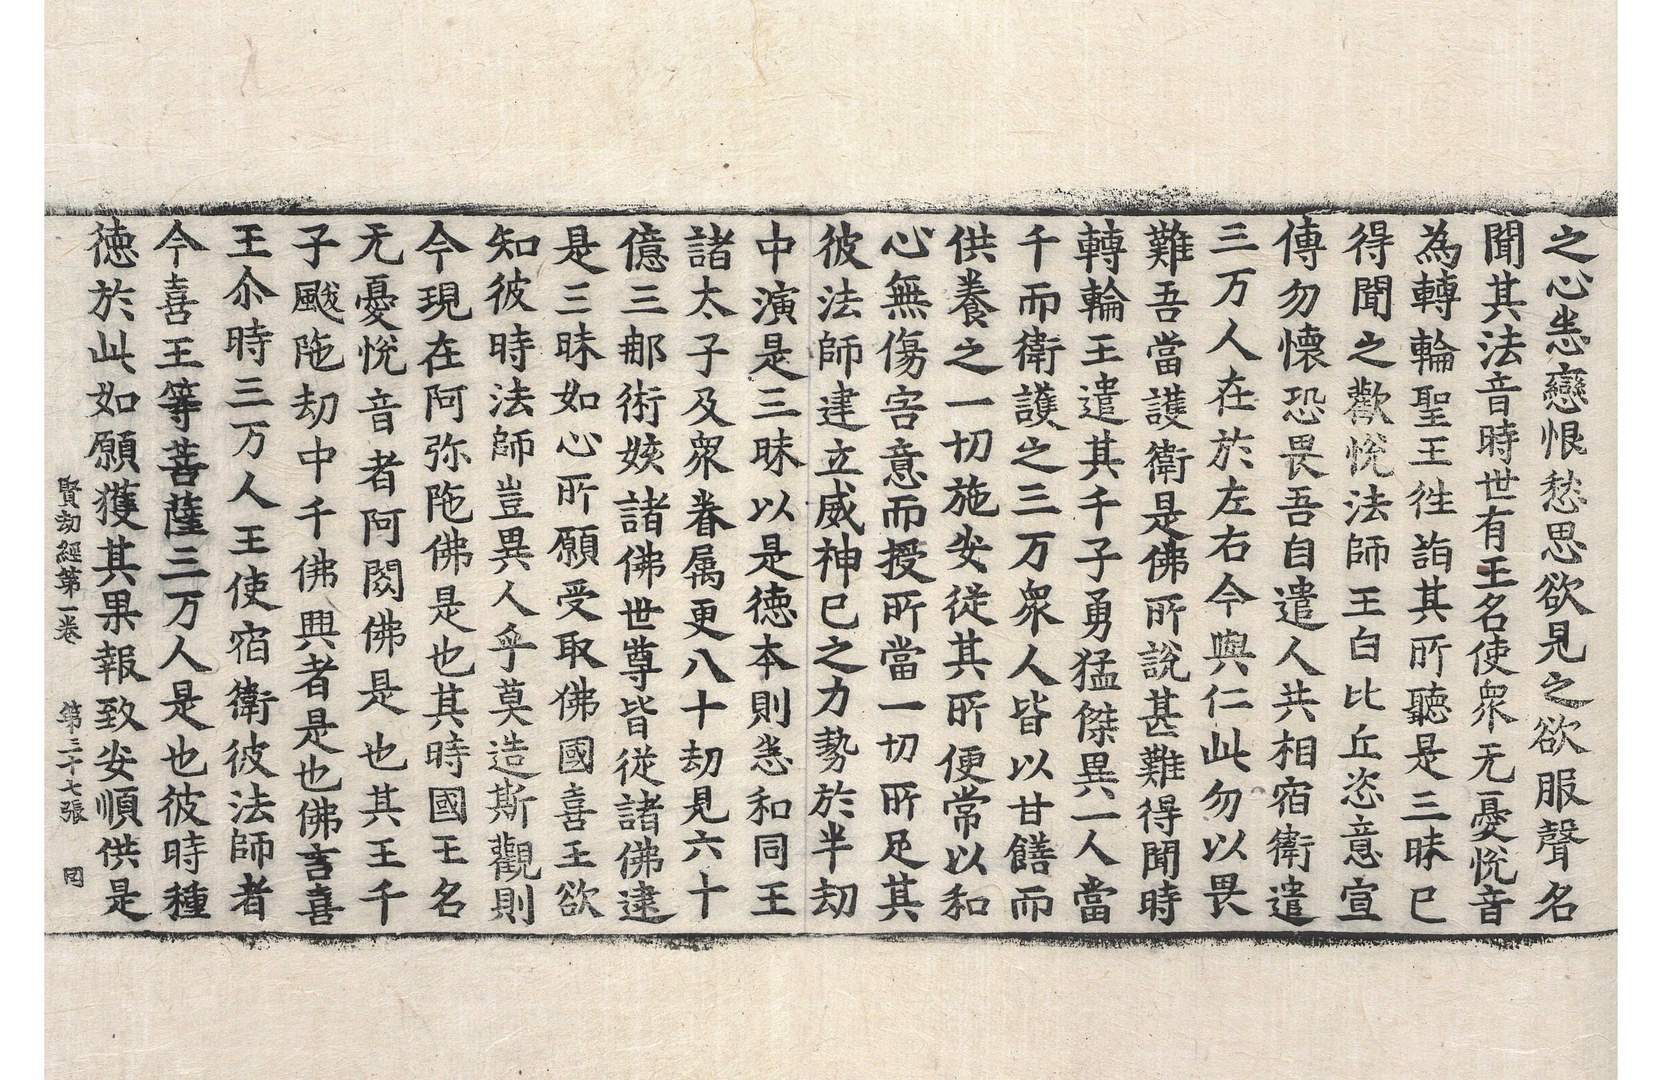 之心恙戀恨愁思欲見之欲服聲名
聞其法音時世有王名使衆无憂悅音
為轉輪聖王徃詣其所聽是三昧已
得聞之歡悅法師王白比丘恣意宣
傳勿懷恐畏吾自遣人共相宿衛遣
三万人在於左右今與仁此勿以畏
難吾當護衛是佛所說甚難得聞時
轉輪王遣其千子勇猛傑異一人當
千而衛護之三万衆人皆以甘饍而
供養之一切施安從其所便常以和
心無傷害意而授所當一切所足其
彼法師建立威神已之力勢於半劫
中演是三昧以是德本則恙和同王
諸太子及衆眷属更八十劫見六十
億三那術姟諸佛世尊皆從諸佛逮
是三昧如心所願受取佛國喜王欲
知彼時法師豈異人乎莫造斯觀則
今現在阿弥陁佛是也其時國王名
无憂悅音者阿閦佛是也其王千
子颰陁劫中千佛興者是也佛言喜
王尒時三万人王使宿衛彼法師者
今喜王等菩薩三万人是也彼時種
德於此如願獲其果報致安順供是
賢劫經第一卷 第三十七張 罔